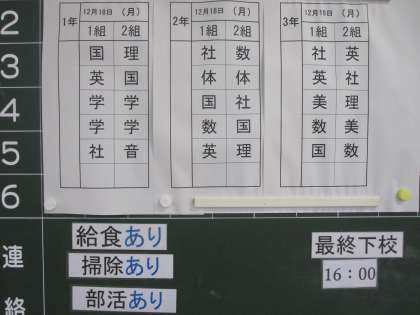 2
3
4
5
6
連
絡
1年 12月18日 (月)
1組 2組
国 理
英 国
学 学
学 学
社 音
2年 12月18日 (月)
1組 2組
社 数
体 体
国 社
数 国
英 理
3年 12月18日 (月)
1組 2組
社 英
英 社
美 理
数 美
国 数
給食あり
掃除あり
部活あり
最終下校
16:00